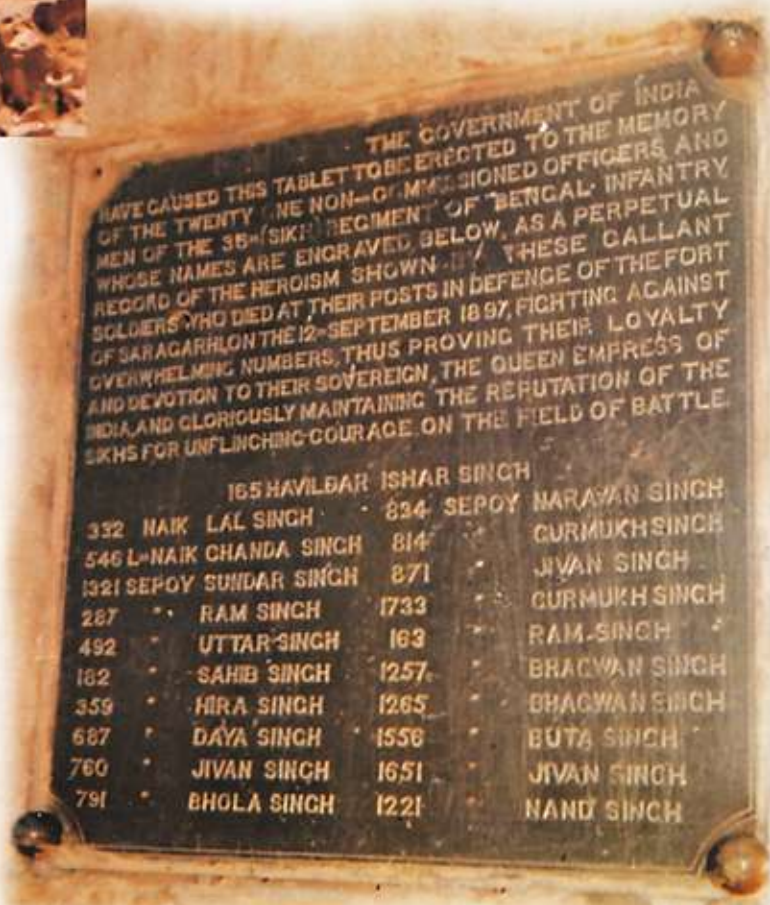 THE GOVERNMENT OF INDIA
HAVE CAUSED THIS TABLET TO BE ERECTED TO THE MEMORY
OF THE TWENTY ONE NON-COMMISSIONED OFFICERS AND
MEN OF THE 36TH (SIKH) REGIMENT OF BENGAL INFANTRY
WHOSE NAMES ARE ENGRAVED BELOW, AS A PERPETUAL
RECORD OF THE HEROISM SHOWN BY THESE GALLANT
SOLDIERS WHO DIED AT THEIR POSTS IN DEFENCE OF THE FORT
OF SARAGARHI, ON THE 12TH SEPTEMBER 1897, FIGHTING AGAINST
OVERWHELMING NUMBERS, THUS PROVING THEIR LOYALTY
AND DEVOTION TO THEIR SOVEREIGN, THE QUEEN EMPRESS OF
INDIA, AND GLORIOUSLY MAINTAINING THE REPUTATION OF THE
SIKHS FOR UNFLINCHING COURAGE ON THE FIELD OF BATTLE.
165 HAVILDAR ISHAR SINGH
332 NAIK LAL SINGH 834 SEPOY NARAYAN SINGH
546 L-NAIK CHANDA SINGH 814 " GURMUKH SINGH
1321 SEPOY SUNDAR SINGH 871 " JIVAN SINGH
287 " RAM SINGH 1733 " GURMUKH SINGH
492 " UTTAR SINGH 163 " RAM SINGH
182 " SAHIB SINGH 1257 " BHAGWAN SINGH
359 " HIRA SINGH 1265 " BHAGWAN SINGH
687 " DAYA SINGH 1556 " BUTA SINGH
760 " JIVAN SINGH 1651 " JIVAN SINGH
791 " BHOLA SINGH 1221 " NAND SINGH